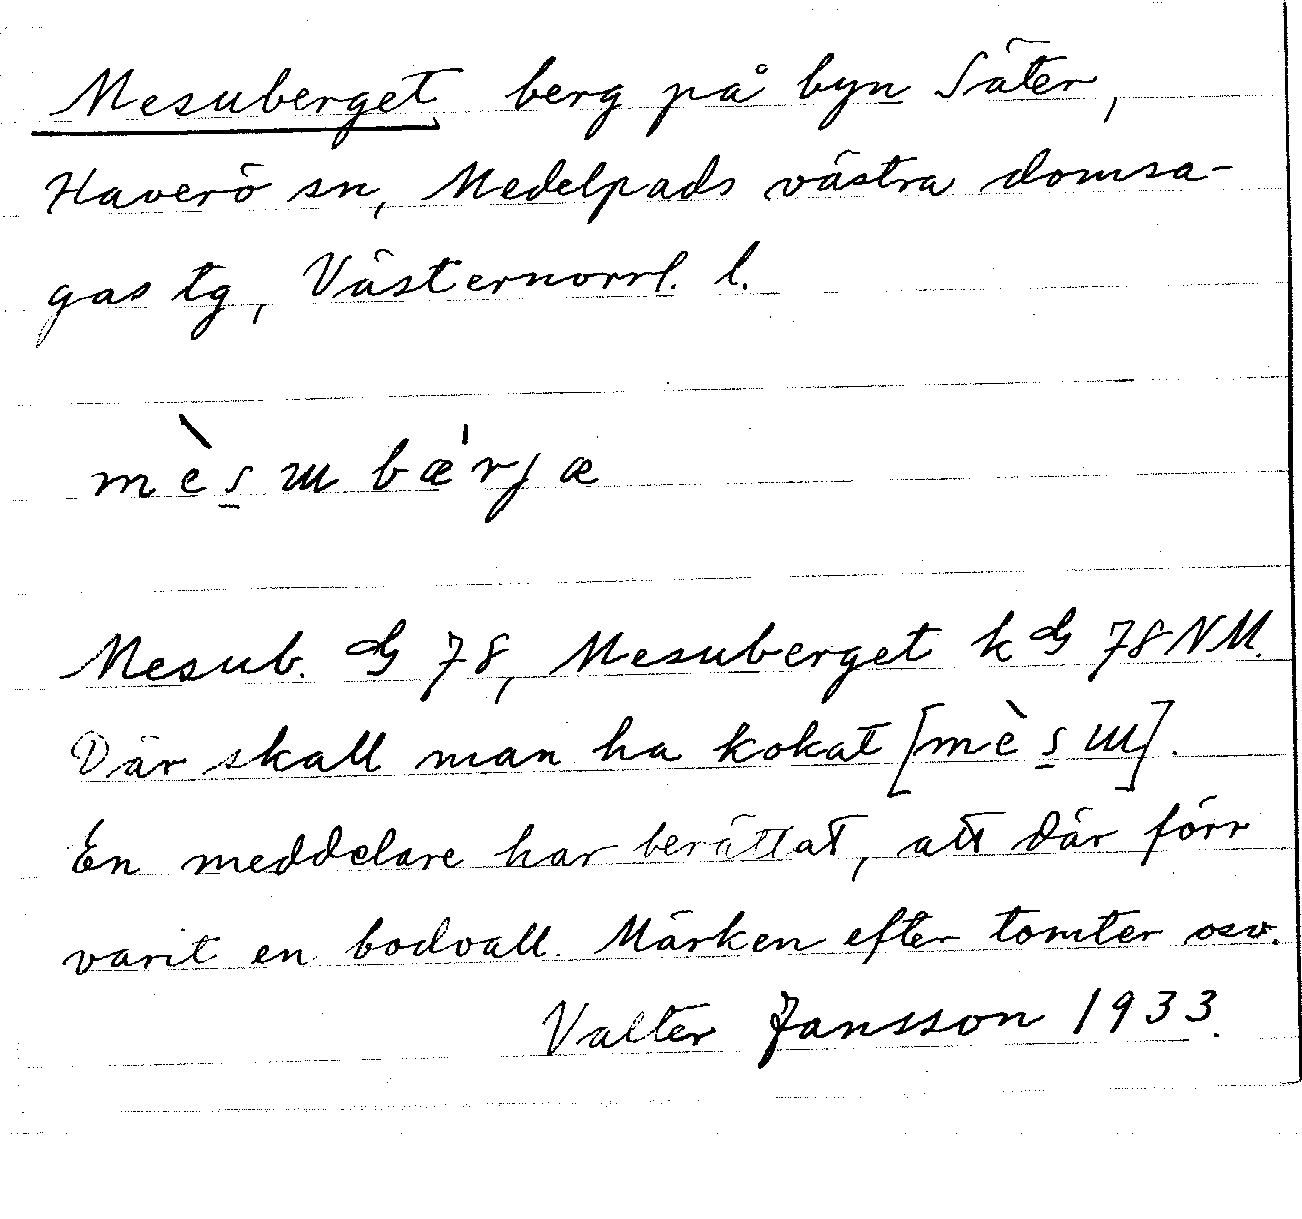 Mesuberget berg på byn Säter,
Haverö sn, Medelpads västra domsa-
gas tg, Västernorrl. l.
mès̠ɯbæ'rjæ
Mesub. G 78, Mesuberget k G 78 NM.
Där skall man ha kokat [mès̠ɯ].
En meddelare har berättat, att där förr
varit en bodvall. Märken efter tomter osv.
Valter Jansson 1933.